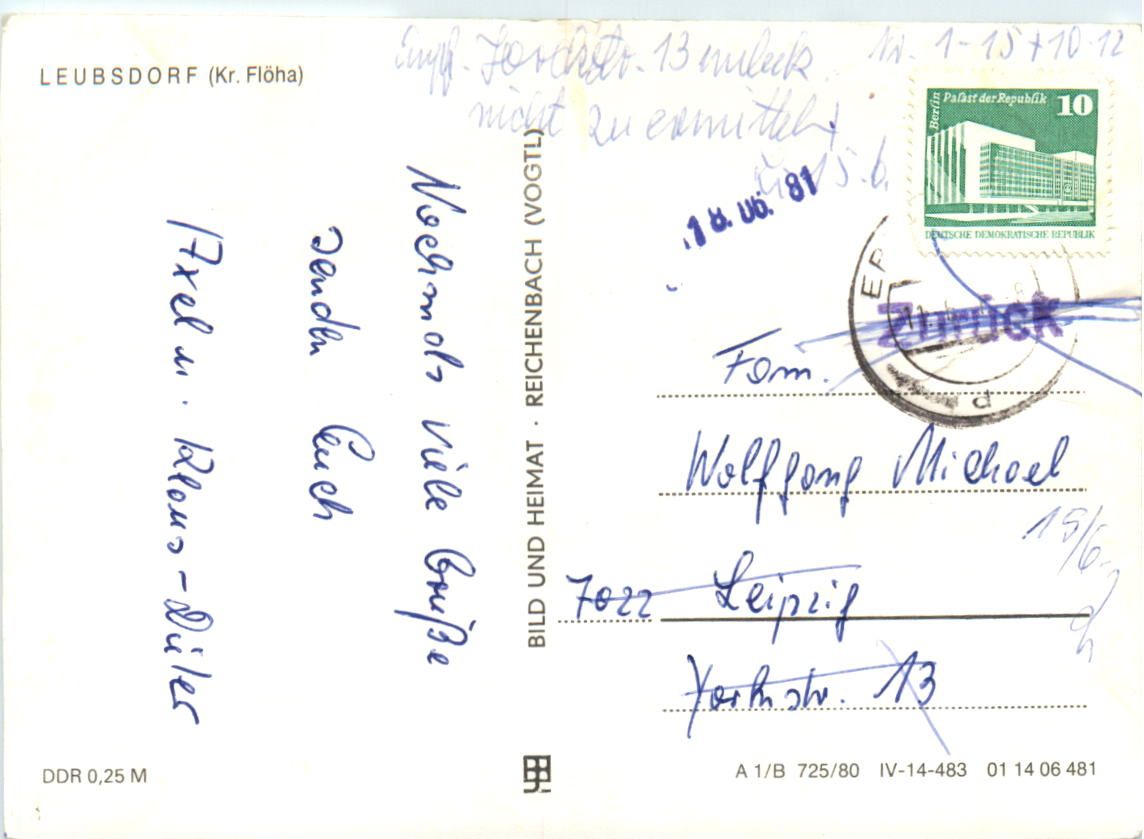 LEUBSDORF (Kr. Flöha)
Nochmals viele Grüße
senden Euch
Axel u. Klaus-Dieter
DDR 0,25 M
BILD UND HEIMAT · REICHENBACH (VOGTL)
Empf. 13 unbek. Nr. 1-15 + 10-12
nicht zu ermitteln
15.6.
18. 06. 81
Berlin
Palast der Republik 10
DEUTSCHE DEMOKRATISCHE REPUBLIK
Zurück
Fam.
Wolfgang Michael
15/6.
7022 Leipzig
Yorkstr. 13
A 1/B 725/80 IV-14-483 01 14 06 481